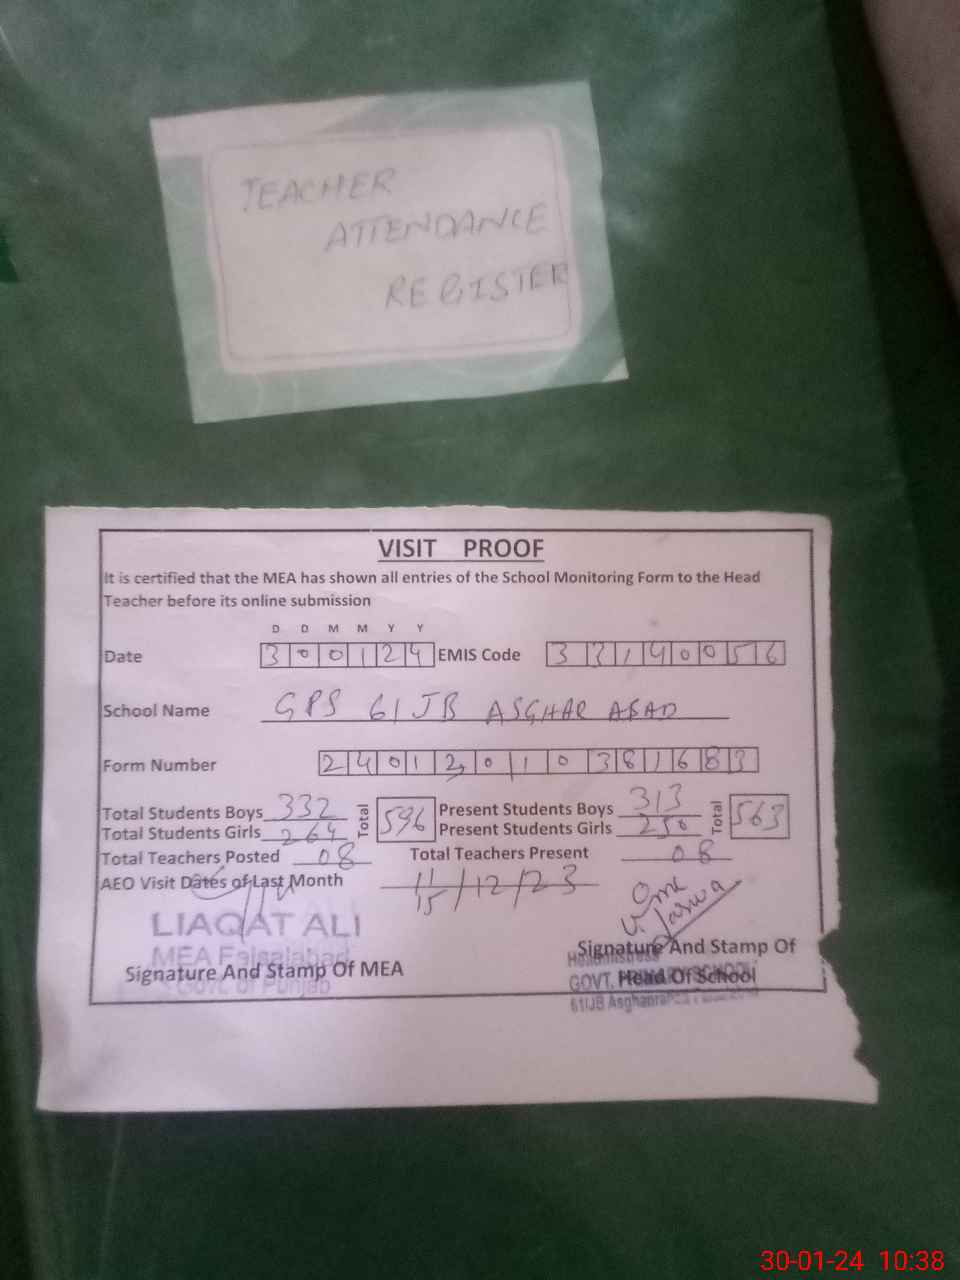 TEACHER
ATTENDANCE
REGISTER
VISIT PROOF
It is certified that the MEA has shown all entries of the School Monitoring Form to the Head
Teacher before its online submission
D D M M Y Y
Date 300124 EMIS Code 33140056
School Name GPS 61 JB ASGHAR ABAD
Form Number 240120110381683
Total Students Boys 332 Total 596 Present Students Boys 313 Total 563
Total Students Girls 264 Present Students Girls 250
Total Teachers Posted 08 Total Teachers Present 08
AEO Visit Dates of Last Month 11/15/12/23
LIAQAT ALI
MEA Faisalabad
Signature And Stamp Of MEA
Govt. of Punjab
Signature And Stamp Of
Headmistress
GOVT. Head Of School
61/JB
30-01-24 10:38